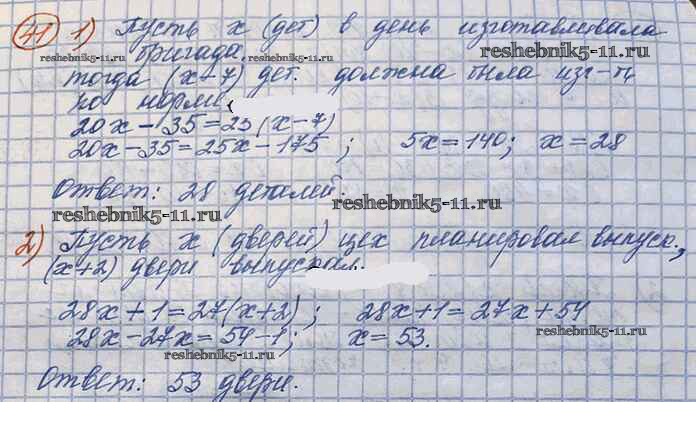 41 1) Пусть x (дет) в день изготавливала
бригада,
reshebnik5-11.ru reshebnik5-11.ru reshebnik5-11.ru
тогда (x-7) дет. должна была изг-ть
по норме
20x - 35 = 25(x-7)
20x - 35 = 25x - 175; 5x = 140; x = 28
Ответ: 28 деталей.
reshebnik5-11.ru reshebnik5-11.ru
2) Пусть x (дверей) цех планировал выпуск.,
(x+2) двери выпускал.
28x + 1 = 27(x+2); 28x+1 = 27x + 54
28x - 27x = 54 - 1; x = 53.
reshebnik5-11.ru reshebnik5-11.ru
Ответ: 53 двери.